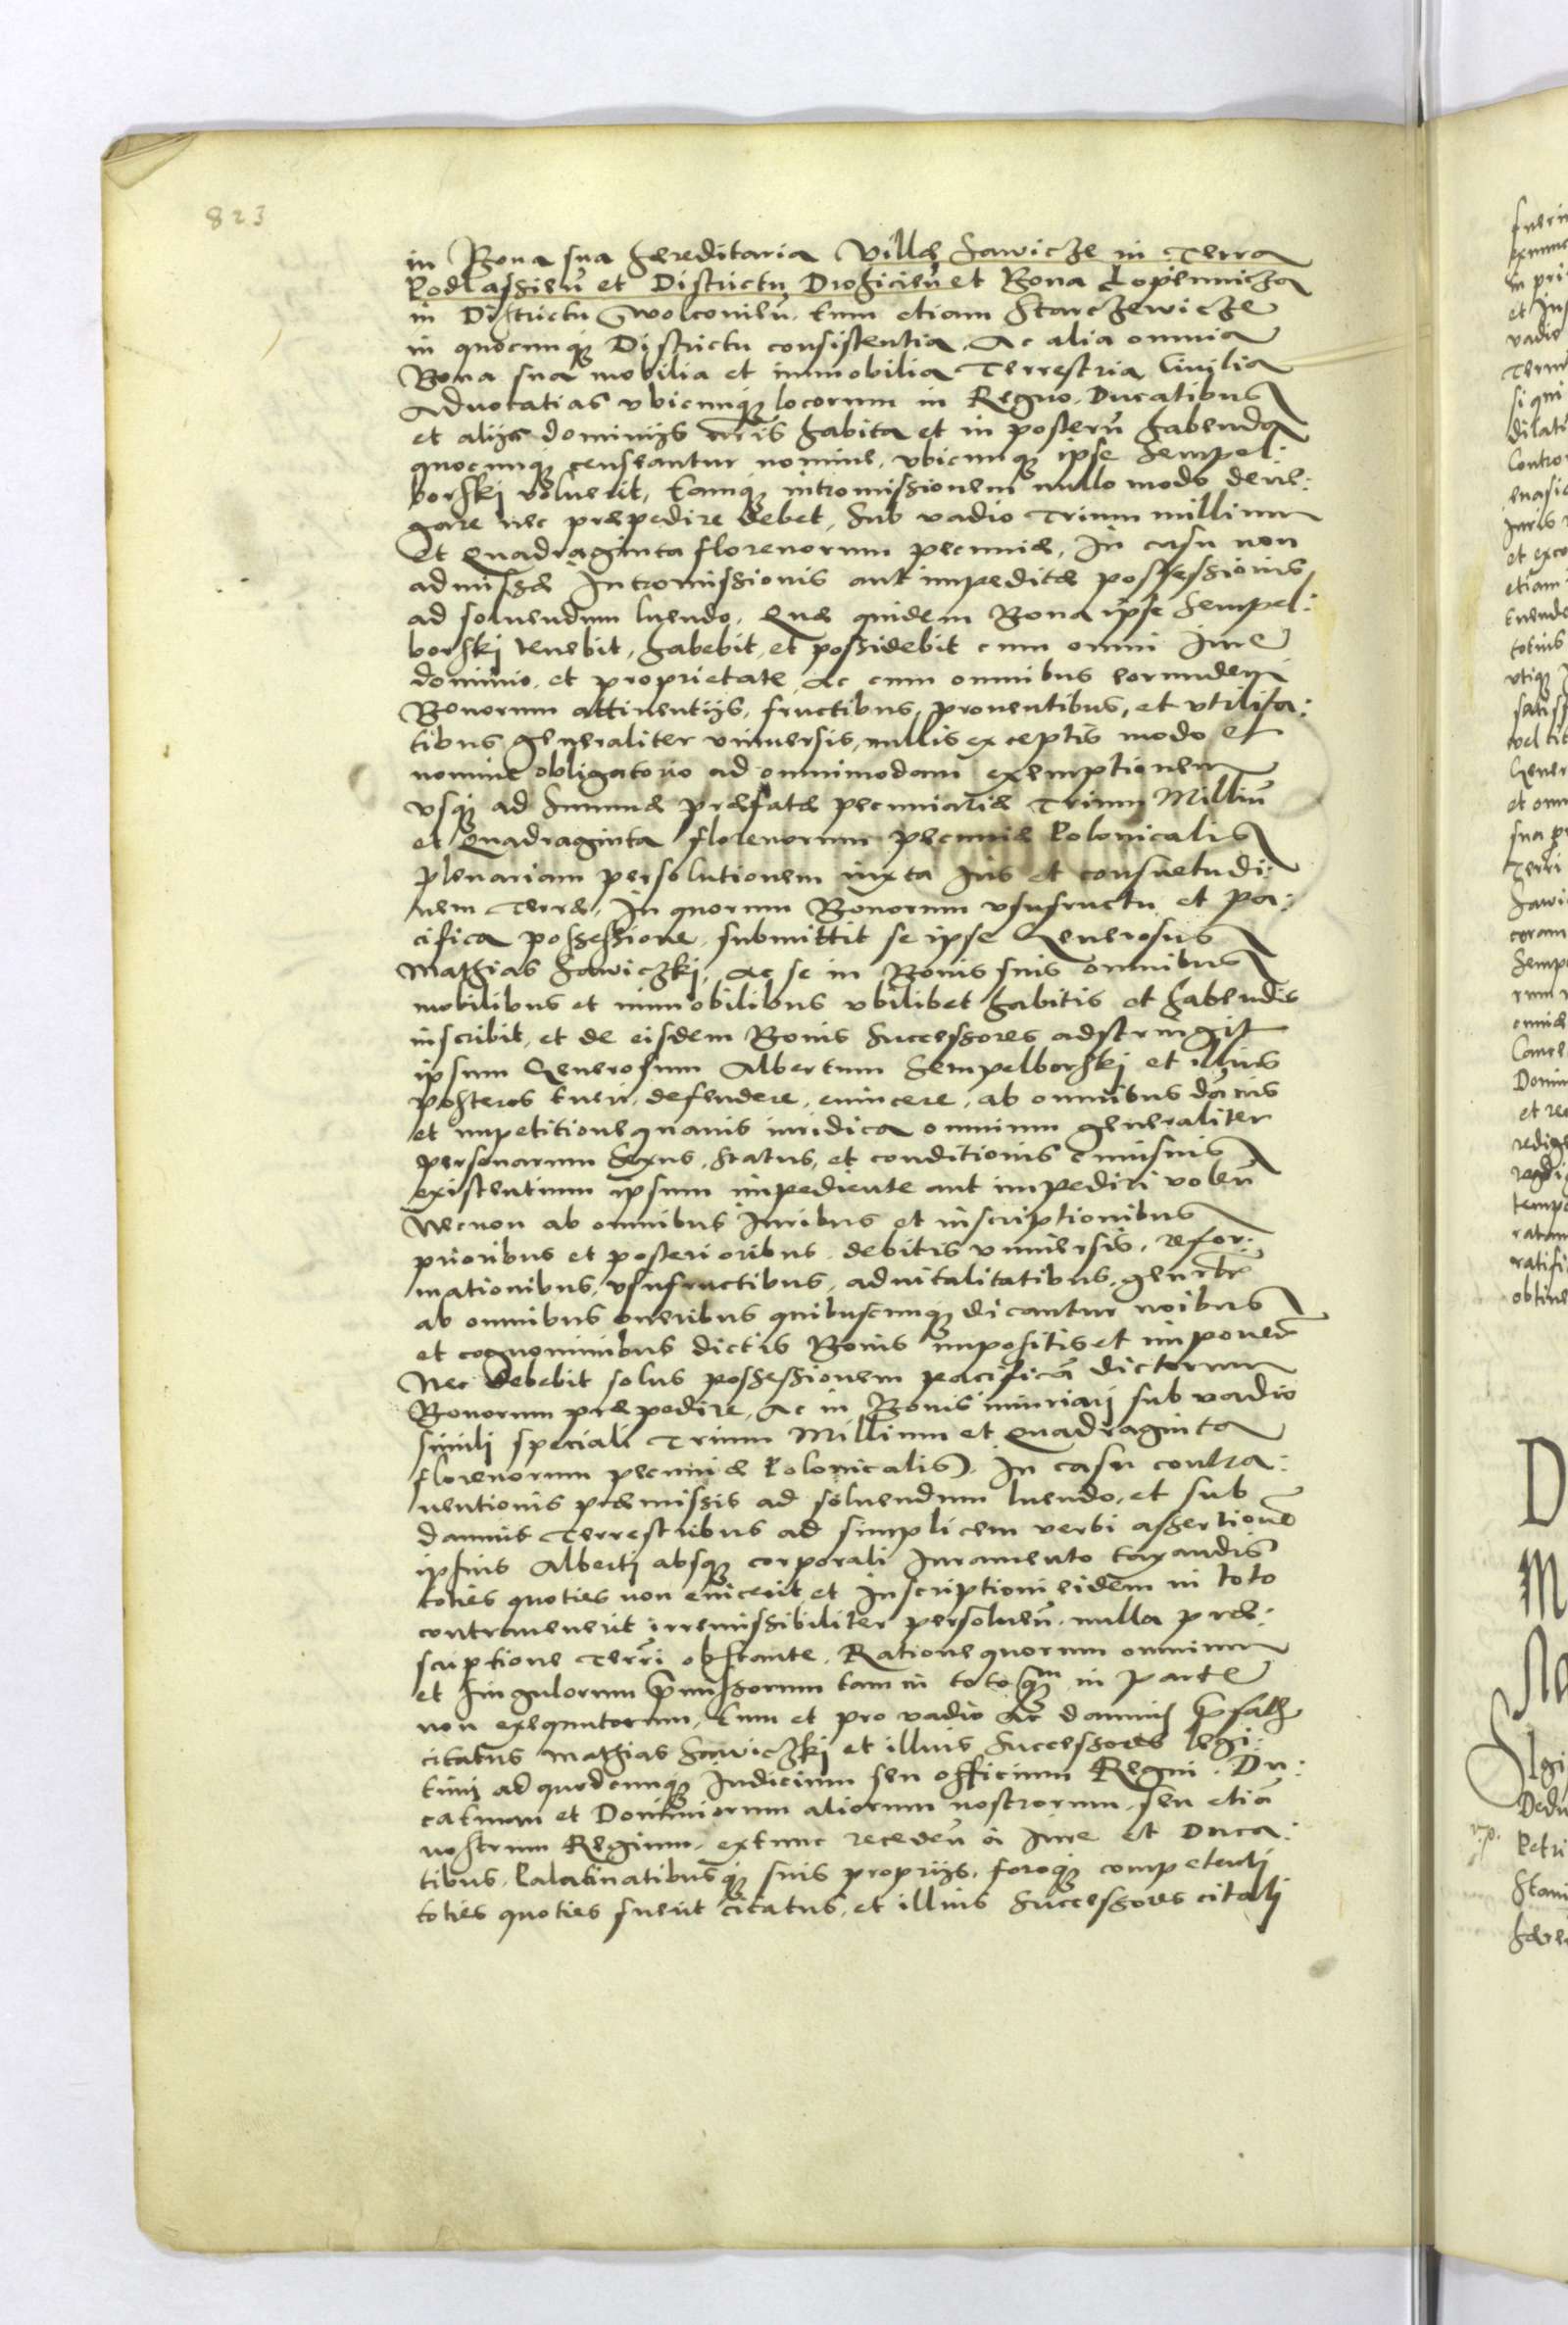 823
in Bona sua hæreditaria Villæ Sawicze in Terra
Podlassieñ et Districtu Drohicieñ et Bona Łopiennicza
in Districtu Swolconieñ. tum etiam Starczewicze
in quocunq; Districtu consistentia. Ac alia omnia
Bona sua mobilia et immobilia Terrestria Ciuilia
Aduocatias vbicunq; locorum in Regno. Ducatibus
et alijs dominijs nris habita et in posterũ habenda
quocunq; censeantur nomine, vbicunq; ipse Sempel:
borski voluerit, Eamq; intromissionem nullo modo dene:
gare nec præpedire debet, sub vadio Trium millium
et Quadraginta florenorum pecuniæ, In casu non
admissæ Intromissionis aut impeditæ possessionis
ad soluendum luendo. Quæ quidem Bona ipse Sempel:
borski tenebit, habebit, et possidebit cum omni iure
dominio, et proprietate, ac cum omnibus eorundem
Bonorum attinentijs, fructibus, prouentibus, et vtilita:
tibus generaliter vniuersis, nullis exceptis modo et
nomine obligatorio ad omnimodam exemptionem
vsq; ad summæ præfatæ pecuniariæ Trium Milliũ
et Quadraginta florenorum pecuniæ Polonicalis
plenariam persolutionem iuxta Ius et consuetudi:
nem Terræ, In quorum Bonorum vsufructu et pa:
cifica possessione, submittit se ipse Generosus
Mathias Sawiczki, ac se in Bonis suis omnibus
mobilibus et immobilibus vbilibet habitis et habendis
inscribit, et de eisdem Bonis Successores adstringit
ipsum Generosum Albertum Sempelborski et illius
posteros tueri, defendere, euincere, ab omnibus dãnis
et impetitione quauis iuridica omnium generaliter
personarum Sexus, Status, et conditionis cuiusuis
existentium ipsum impediente aut impediri voleñ
Necnon ab omnibus Iuribus et inscriptionibus
prioribus et posterioribus debitis vniuersis, refor:
mationibus, vsufructibus, aduitalitatibus, genrlr
ab omnibus oneribus quibuscunq; dicantur noibus
et cognominibus dictis Bonis impositis et imponeñ
Nec debebit solus possessionem pacificã dictorum
Bonorum præpedire, ac in Bonis iniuriari sub vadio
simili speciali Trium Millium et Quadraginta
florenorum pecuniæ Polonicalis. In casu contra:
uentionis præmissis ad soluendum luendo, et sub
damnis Terrestribus ad simplicem verbi assertionẽ
ipsius Alberti absq; corporali Iuramento taxandis
toties quoties non euicerit et Inscriptioni eidem in toto
contrauenerit irremissibiliter persolueñ. nulla præ:
scriptione Terri obstante. Ratione quorum omnium
et singulorum p̃missorum tam in toto q̃m in parte
non exequutorum, tum et pro vadio ac damnis p̃fatis
citatus Mathias Sawiczki et illius Successores legi:
timi ad quodcunq; Iudicium seu officium Regni. Du:
catuum et Dominiorum aliorum nostrorum, seu etiã
nostrum Regium, extunc recedeñ à iure et Duca:
tibus, Palatinatibusq; suis proprijs, foroq; competenti
toties quoties fuerit citatus, et illius Successores citati